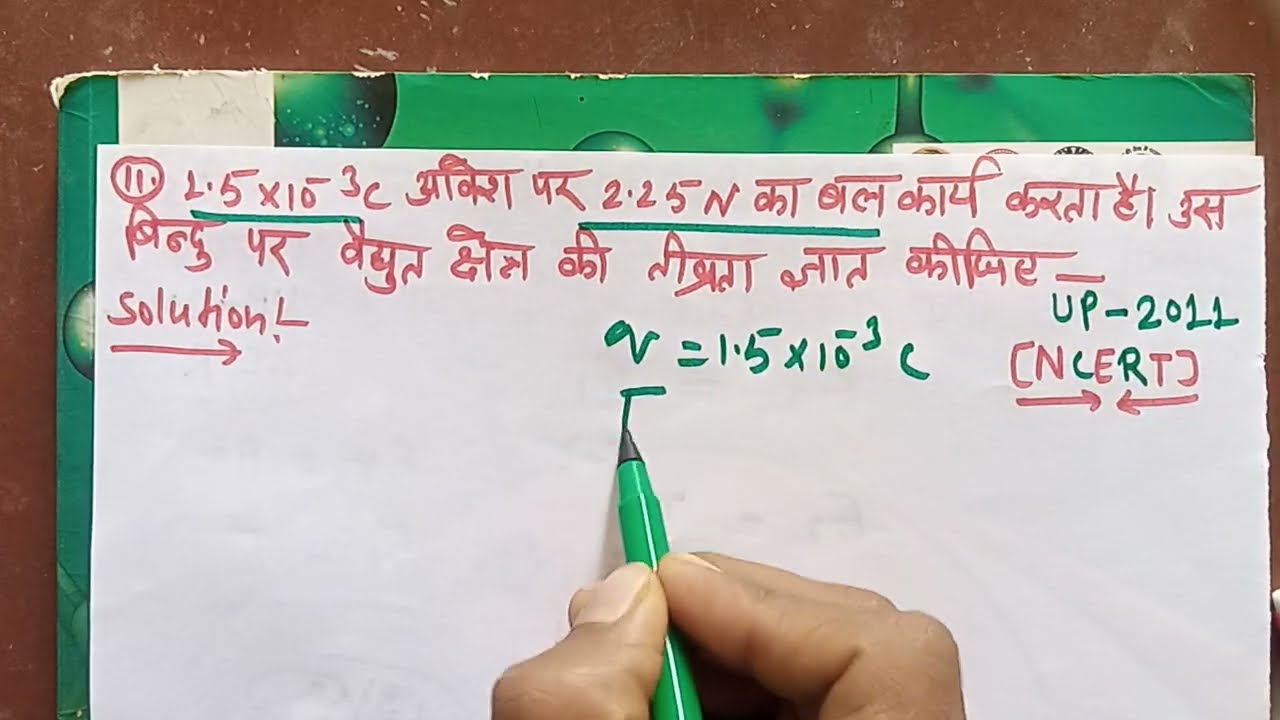 11. 1.5×10⁻³C आवेश पर 2.25 N का बल कार्य करता है। उस
बिन्दु पर वैद्युत क्षेत्र की तीव्रता ज्ञात कीजिए —
Solution!-
UP-2011
q = 1.5×10⁻³ C
[NCERT]